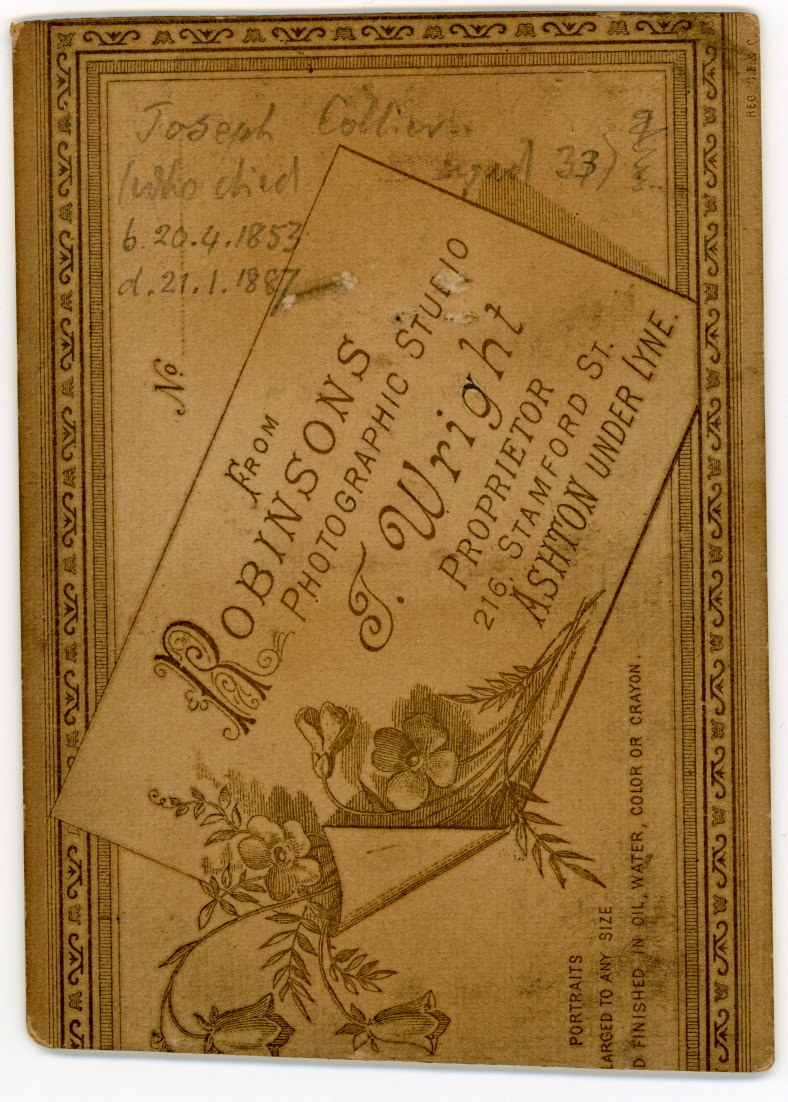 Joseph Collier
(who died aged 33)
b. 20.4.1853
d. 21.1.1887
No
FROM
ROBINSONS
PHOTOGRAPHIC STUDIO
T. Wright
PROPRIETOR
216, STAMFORD ST.
ASHTON UNDER LYNE.
PORTRAITS
LARGED TO ANY SIZE
D FINISHED IN OIL, WATER, COLOR OR CRAYON.